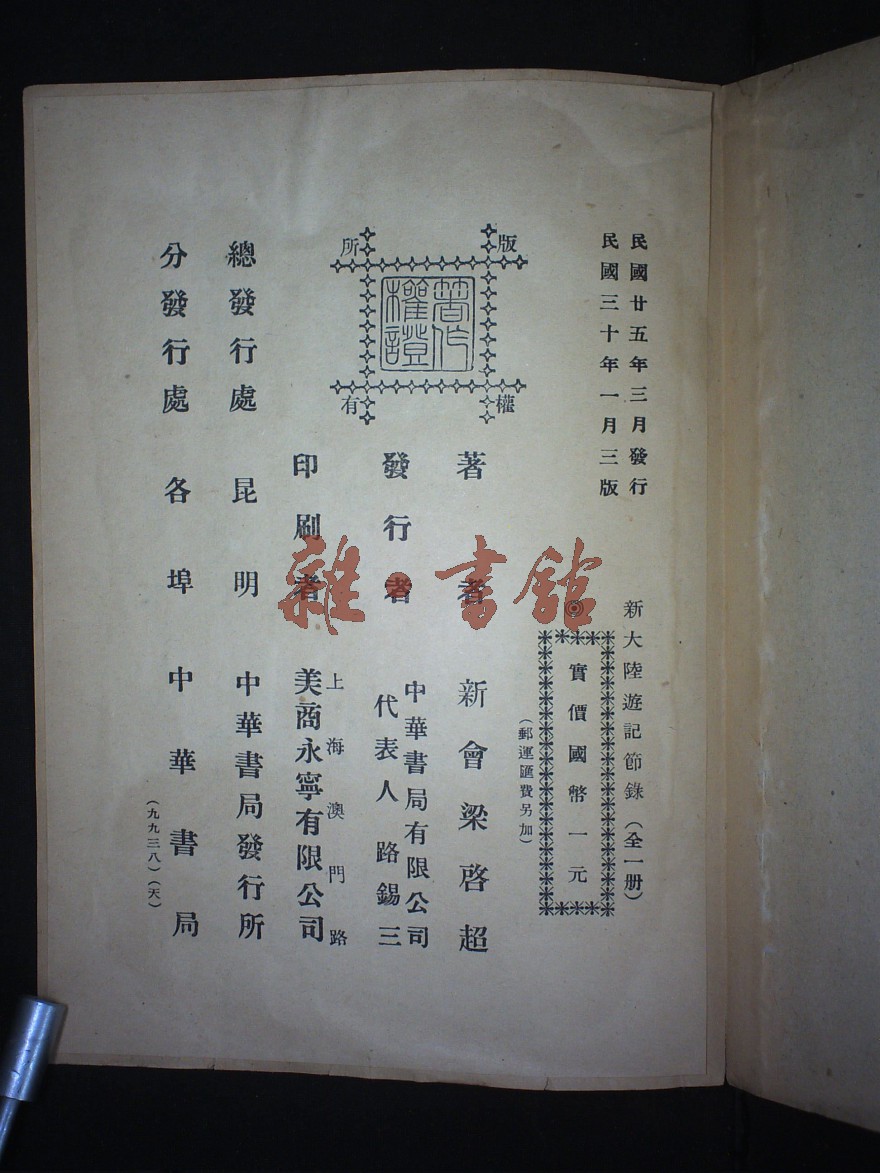 民國廿五年三月發行
民國三十年一月三版
新大陸遊記節錄（全一册）
實價國幣一元
（郵運匯費另加）
版權所有
著作權證
著者 新會梁啓超
發行者 中華書局有限公司
代表人 路錫三
印刷者 上海澳門路
美商永寧有限公司
總發行處 昆明 中華書局發行所
分發行處 各埠 中華書局
（九九三八）（天）
雜·書館